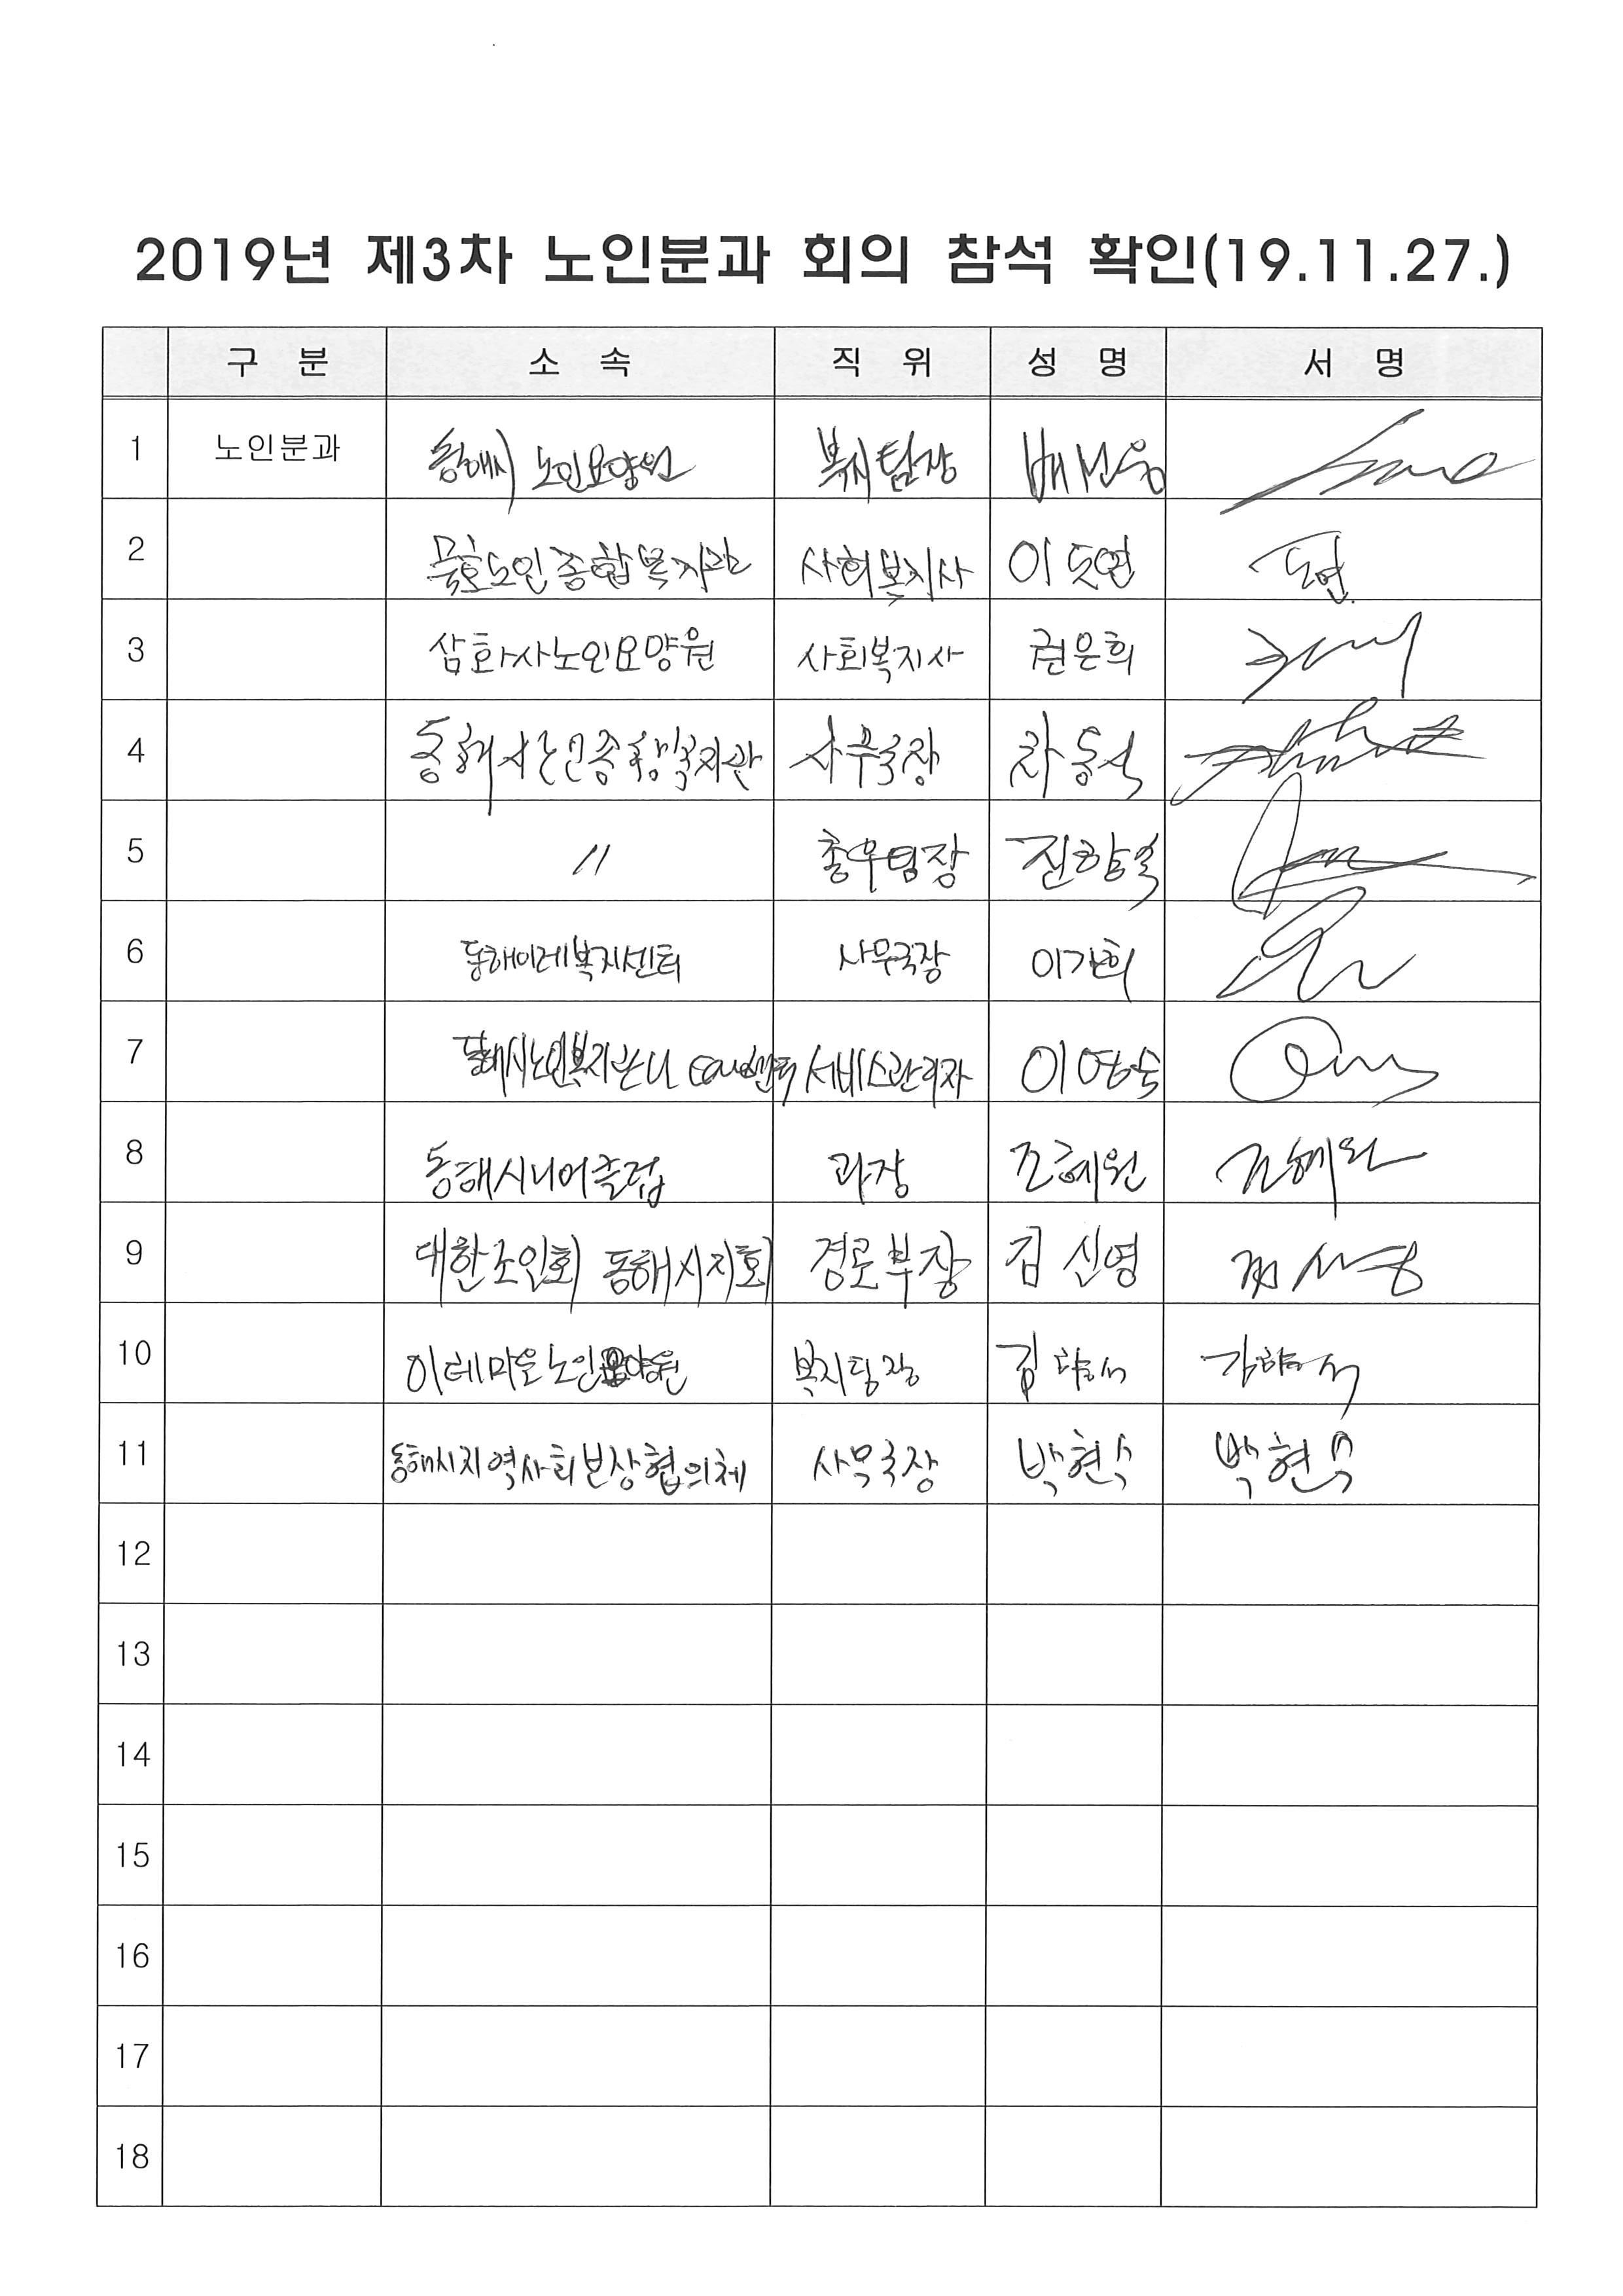 2019년 제3차 노인분과 회의 참석 확인(19.11.27.)
구 분 소 속 직 위 성 명 서 명
1 노인분과 동해시 노인요양원 복지팀장 배선웅
2 묵호노인종합복지관 사회복지사 이도연 도연
3 삼화사노인요양원 사회복지사 권은희
4 동해시노인종합복지관 사무국장 차동석
5 〃 총무팀장 진항열
6 동해이레복지센터 사무국장 이가희
7 동해시노인복지관 서비스관리자 이영숙
8 동해시니어클럽 과장 조혜원 조혜원
9 대한노인회 동해시지회 경로부장 김신영
10 이레마을노인요양원 복지팀장
11 동해시지역사회보장협의체 사무국장 박현수 박현수
12
13
14
15
16
17
18